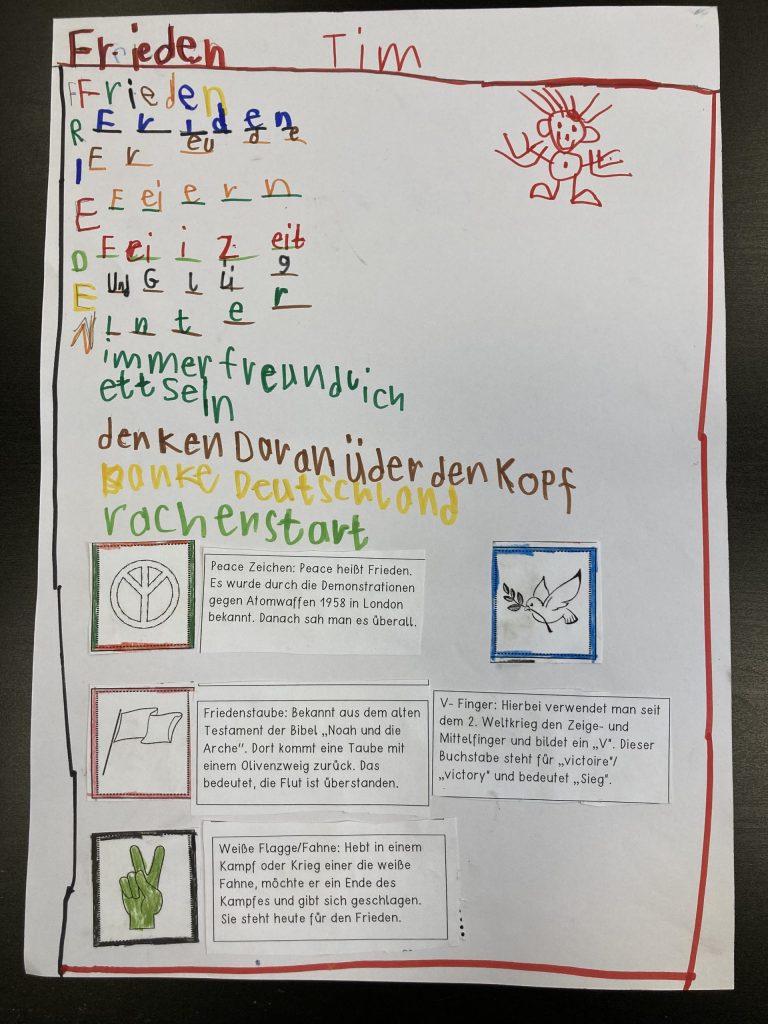 Frieden Tim
F Frieden
R F r i d e n
eu d e
I E r
E F ei e r n
D F ei i Z eit
E und G l ü g
N i n t e r
immer freundlich
ett sein
denken Daran üder den Kopf
Danke Deutschland
rachenstart
Peace Zeichen: Peace heißt Frieden.
Es wurde durch die Demonstrationen
gegen Atomwaffen 1958 in London
bekannt. Danach sah man es überall.
Friedenstaube: Bekannt aus dem alten
Testament der Bibel „Noah und die
Arche“. Dort kommt eine Taube mit
einem Olivenzweig zurück. Das
bedeutet, die Flut ist überstanden.
V- Finger: Hierbei verwendet man seit
dem 2. Weltkrieg den Zeige- und
Mittelfinger und bildet ein „V“. Dieser
Buchstabe steht für „victoire“/
„victory“ und bedeutet „Sieg“.
Weiße Flagge/Fahne: Hebt in einem
Kampf oder Krieg einer die weiße
Fahne, möchte er ein Ende des
Kampfes und gibt sich geschlagen.
Sie steht heute für den Frieden.